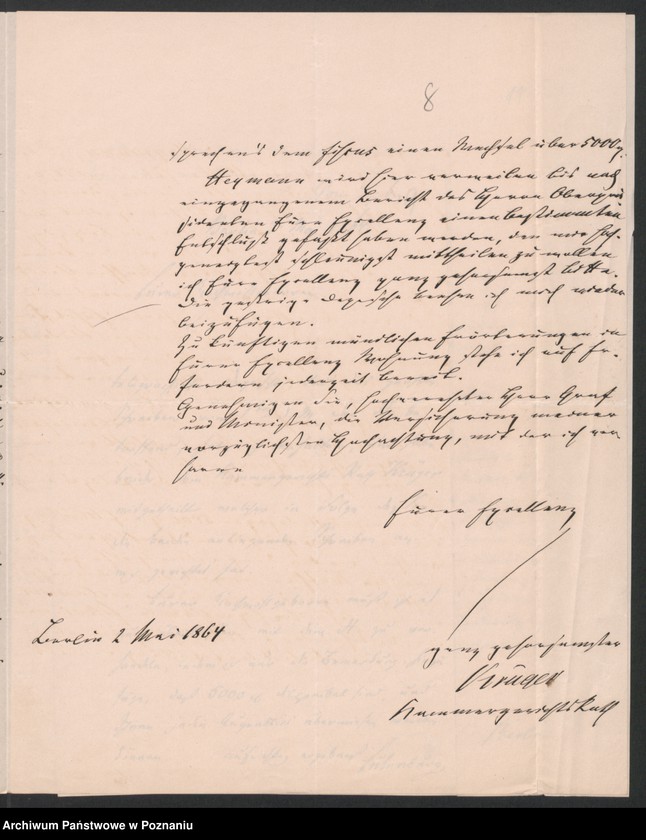 8
sprechend dem Fiskus einen Wechsel über 5000
Heymann wird hier verweilen bis nach
eingegangenem Bericht des Herrn Oberprä
sidenten Eure Excellenz einen bestimmten
Entschluß gefaßt haben werden, den mir hoch
geneigtest schleunigst mittheilen zu wollen
ich Eure Excellenz ganz gehorsamst bitte.
Die gestrige Depesche beehre ich mich wieder
beizufügen.
Zu künftigen mündlichen Erörterungen in
Eurer Excellenz Wohnung stehe ich auf Er-
fordern jederzeit bereit.
Genehmigen Sie, hochverehrter Herr Graf
und Minister, die Versicherung meiner
vorzüglichsten Hochachtung, mit der ich ver
harre
Eurer Excellenz
Berlin 2 Mai 1864
ganz gehorsamster
Krüger
Kammergerichts Rath
Archiwum Państwowe w Poznaniu